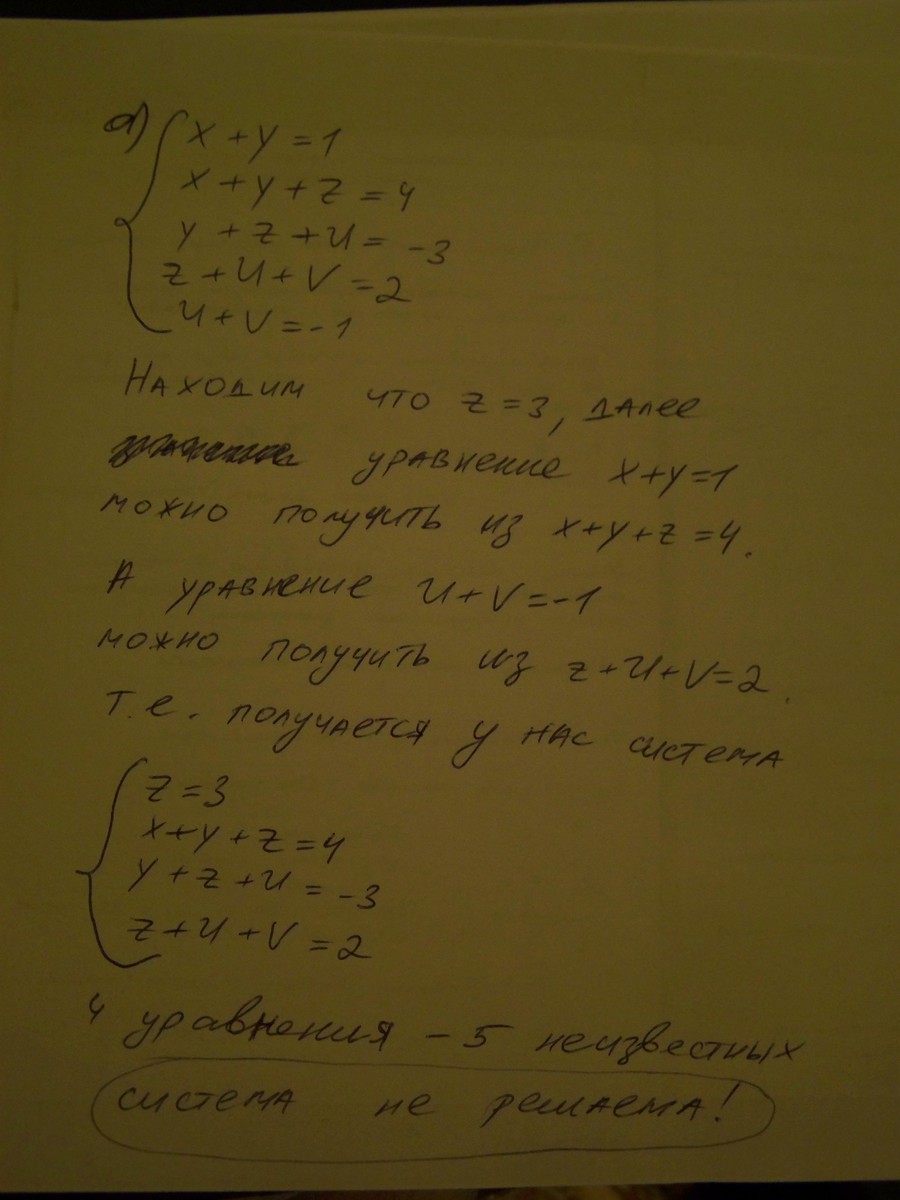 а) x + y = 1
x + y + z = 4
y + z + u = -3
z + u + v = 2
u + v = -1
Находим что z = 3, далее
уравнение x+y=1
можно получить из x+y+z=4.
А уравнение u+v=-1
можно получить из z+u+v=2.
т.е. получается у нас система
z = 3
x+y+z=4
y+z+u=-3
z+u+v=2
4 уравнения - 5 неизвестных
система не решаема!